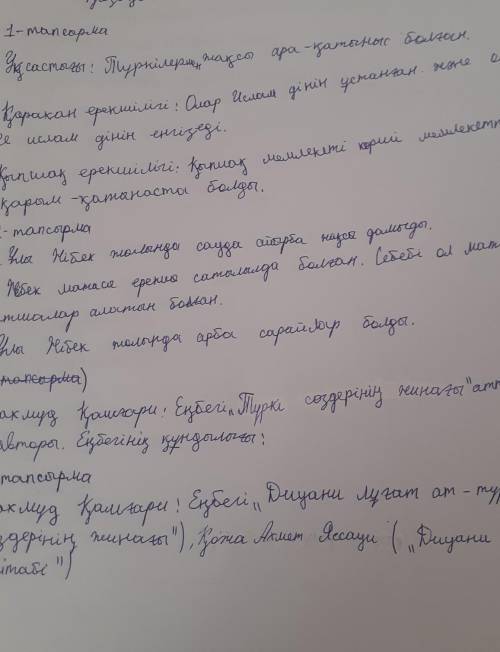 1-тапсарма
Ұқсастығы: Түркілермен жақсы ара-қатыныс болған.
Қарахан ерекшилігі: Олар Ислам дінін ұстанған. және
ислам дінін енгізеді.
Қыпшақ ерекшилігі: Қыпшақ мемлекеті көрші мемлекетт
қарым-қатынаста болды.
-тапсырма
лы Жібек жолында сауда айырбас жақсы дамыды.
Жібек матаса ерекше сатылылда болған. Себебі ол мат
тшалар алатын болған.
лы Жібек жолында арба сарайлар болды.
тапсырма)
ахмуд Қашғари: Еңбегі „Түркі сөздерінің жинағы" атт
авторы. Еңбегінің құндылығы:
тапсырма
ахмуд Қашғари: Еңбегі „Диуани лұғат ат-түр
здерінің жинағы"), Қожа Ахмет Яссауи („Диуани
ітабі")